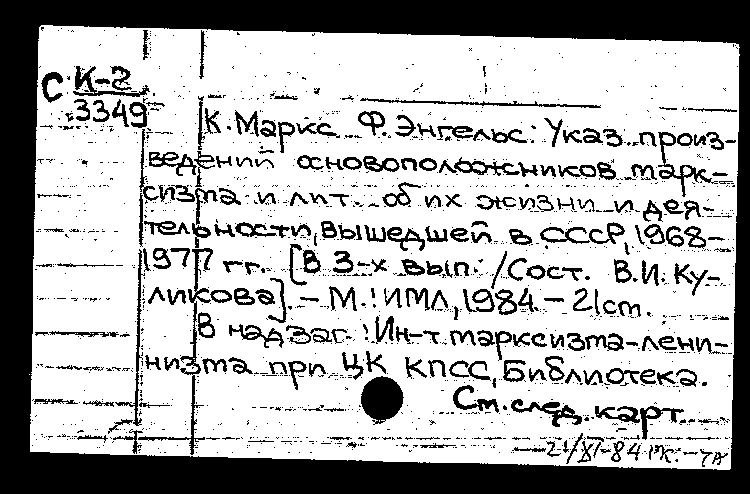 С К-8
3349
К. Маркс Ф. Энгельс: Указ. произ-
ведений основоположников марк-
сизма и лит. об их жизни и дея-
тельности, вышедшей в СССР, 1968-
1977 гг. [В 3-х вып. /Сост. В.И. Ку-
ликова]. - М.: ИМЛ, 1984 - 21 см.
В надзаг.: Ин-т марксизма-лени-
низма при ЦК КПСС, Библиотека.
См. след. карт.